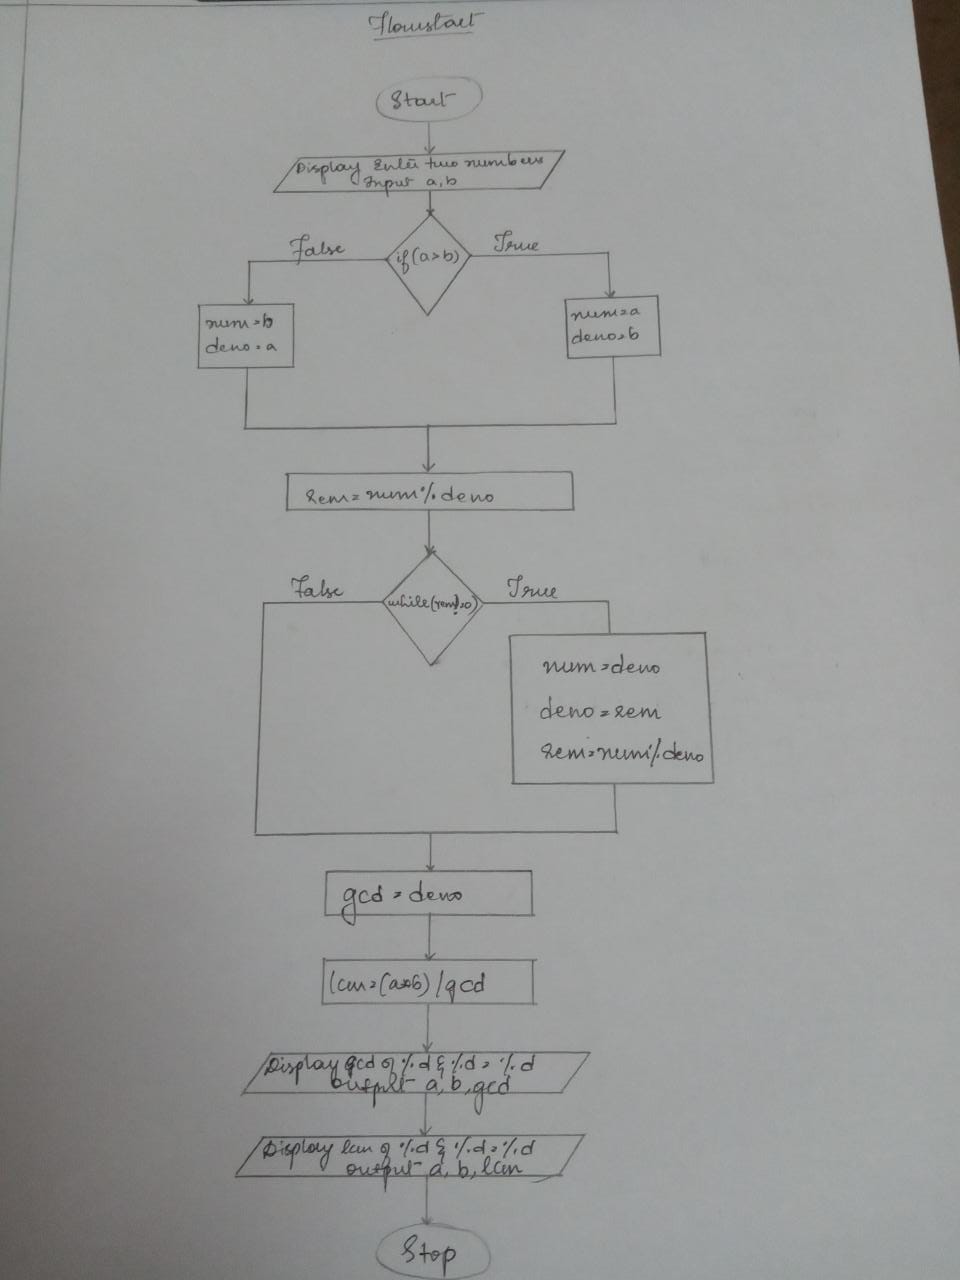 Flowstart
Start
Display Enter two numbers
Input a,b
False
if(a>b)
True
num=b
deno=a
num=a
deno=b
rem=num%deno
False
while(rem!=0)
True
num=deno
deno=rem
rem=num%deno
gcd=deno
lcm=(a*b)/gcd
Display gcd of %d & %d = %d
output a, b, gcd
Display lcm of %d & %d = %d
output a, b, lcm
Stop